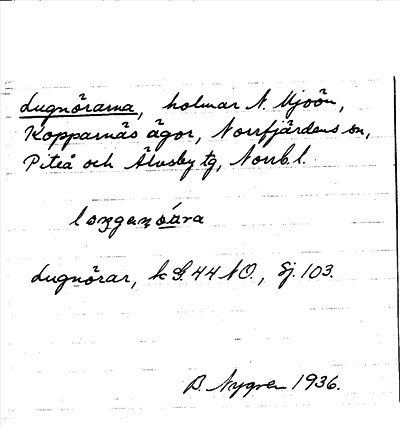 Lugnörarna, holmar N. Mjoön,
Kopparnäs ägor, Norrfjärdens sn,
Piteå och Älvsby tg, Norrb.l.
Lugnörar, k G.44 NO., Sj. 103.
B. Nygren 1936.